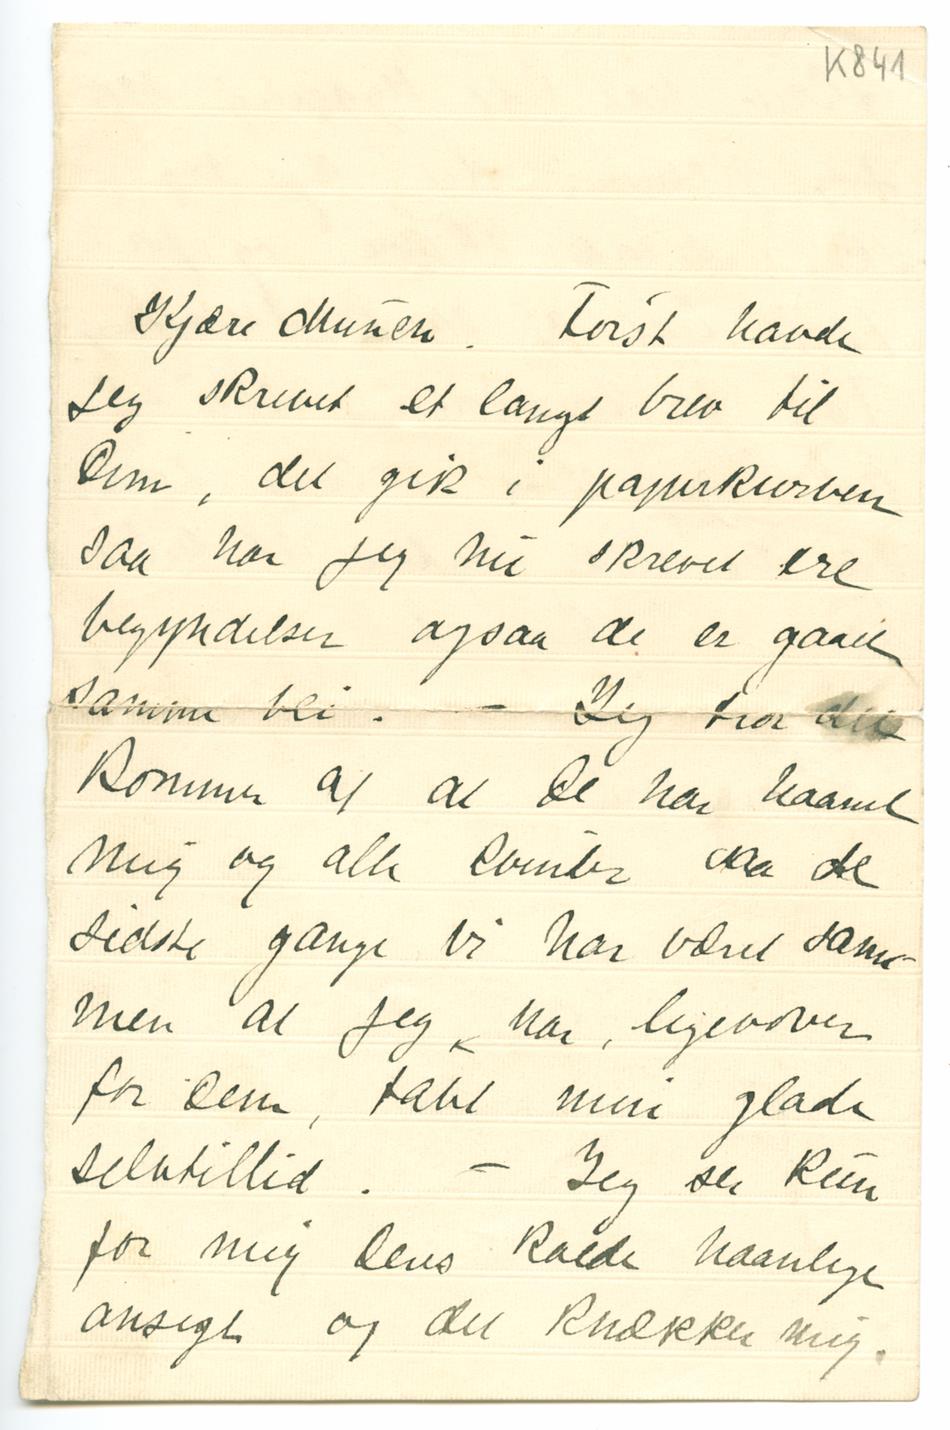 K841
Kjære Munch. Først havde
jeg skrevet et langt brev til
Dem, det gik i papirkurven
saa har jeg nu skrevet tre
begyndelser ogsaa de er gaaet
samme vei. – Jeg tror det
kommer af at De har haanet
mig og alle kvinder saa de
sidste gange vi har været sam-
men at jeg har, ligeoover
for Dem, tabt min glade
selvtillid. – Jeg ser kun
for mig Deres kolde haanlige
ansigt og det knækker mig.